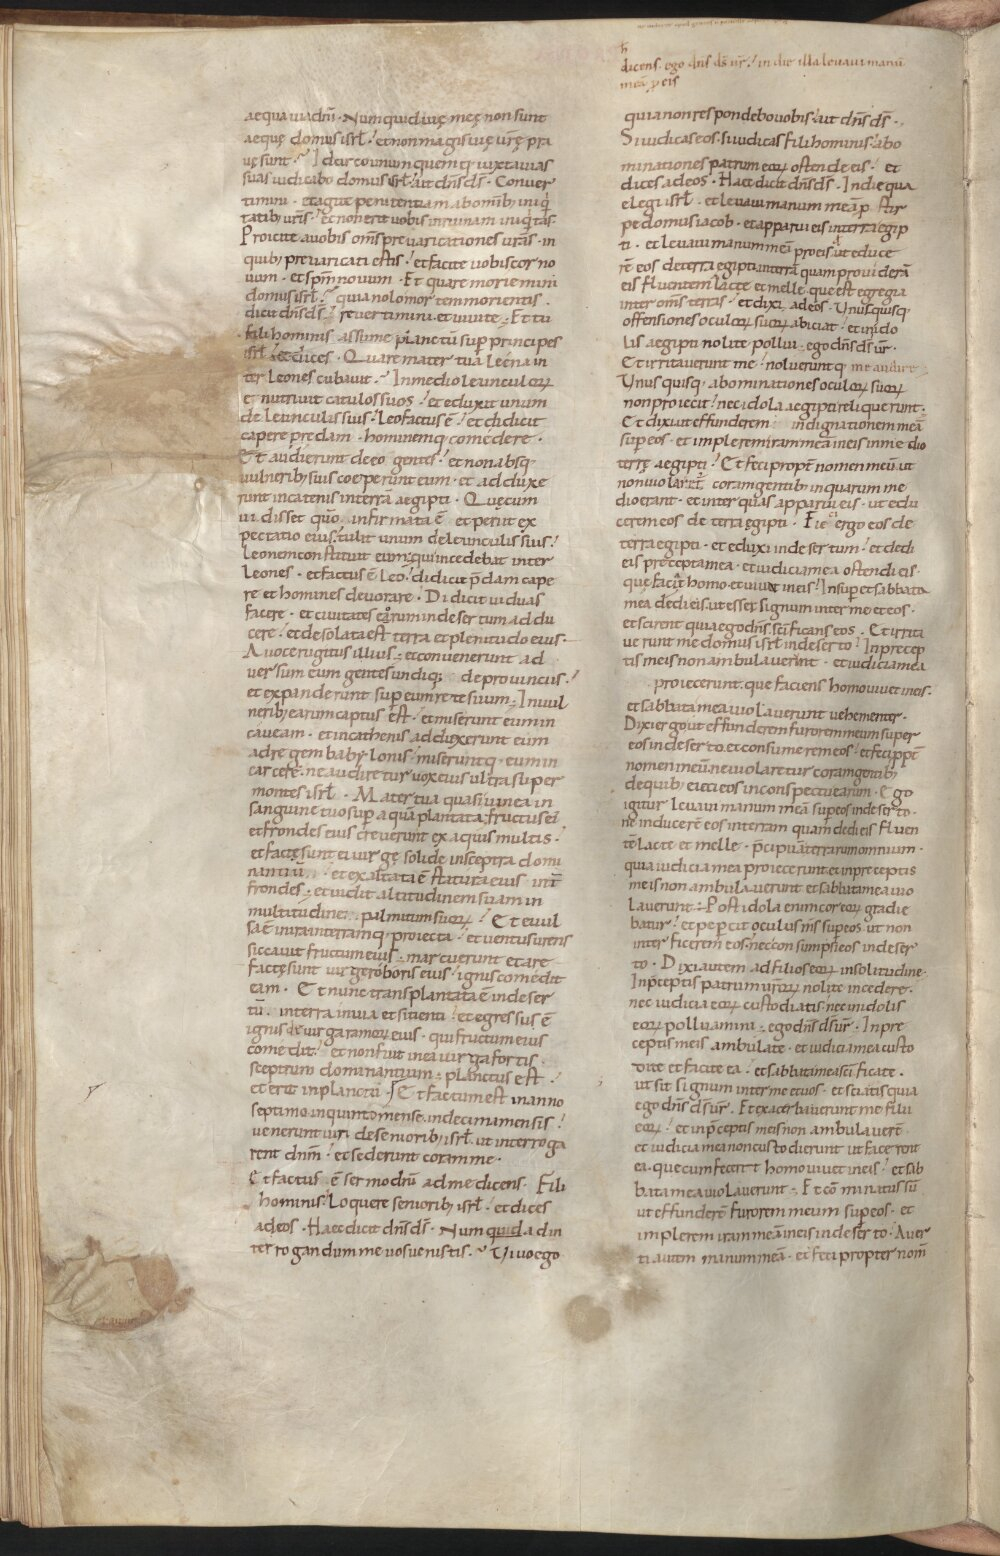 dicens. ego dn̄s ds̄ ur̄. in die illa levavi manū
meā p eis
aequa via dn̄i. Numquid vię meę non sunt
aequę domus isrl̄. et non magis vię urę̄ pra
vę sunt. Idcirco unum quemq; iuxta vias
suas iudicabo domus isrl̄. ait dn̄s ds̄. Conver
timini. et agite penitentiam ab omib; iniqui
tatib; uris̄. et non erit vobis in ruinam iniq̇tas.
Proicite a vobis oms̄ prevaricationes urās. in
quib; prevaricati estis. et facite vobis cor no
vum. et spm̄ novum. Et quare moriemini
domus isrl̄. quia nolo mortem morientis.
dicit dn̄s ds̄. revertimini. et vivite. Et tu
fili hominis assume planctū sup principes
isrl̄. et dices. Quare mater tua leęna in
ter leones cubavit. In medio leunculorꝝ
enutrivit catulos suos. et eduxit unum
de leunculis suis. Leo factus ē. et didicit
capere predam. hominemq; comedere.
Et audierunt de eo gentes. et non absq;
vulnerib; suis coeperunt eum. et adduxe
runt in catenis in terrā aegipti. Quę cum
vidisset qūo infirmata ē et periit ex
pectatio eius. tulit unum de leunculis suis.
Leonem constituit eum. qui incedebat inter
leones. et factus ē leo. didicit p̄dam cape
re et homines devorare. Didicit viduas
facere. et civitates eorum in desertum addu
cere. et desolata est terra et plenitudo eius.
A voce rugitus illius. et convenerunt ad
versum eum gentes undiq; de provinciis.
et expanderunt sup eum rete suum. In vul
nerib; earum captus est. et miserunt eum in
caveam. et in cathenis adduxerunt eum
ad regem babylonis. miseruntq; eum in
carcere. ne audiretur vox eius ultra super
montes isrl̄. Mater tua quasi vinea in
sanguine tuo sup aquā plantata. fructus ei
et frondes eius creverunt ex aquis multis.
et factę sunt ei virgę solidę in sceptra domi
nantiū. et exaltata ē statura eius inī
frondes. et vidit altitudinem suam in
multitudine palmitum suorꝝ. Et evul
sa ē in ira in terramq; proiecta. et ventus urens
siccavit fructum eius. marcuerunt et are
factę sunt virgę roboris eius. ignis comedit
eam. Et nunc transplantata ē in deser
tū. in terra invia et sitienti. et egressus ē
ignis de virga ramorꝝ eius. qui fructum eius
comedit. et non fuit in ea virga fortis.
sceptrum dominantium. planctus est.
et erit in planctū. Et factum est in anno
septimo. in quinto mense. in decima mensis.
venerunt viri de seniorib; isrl̄. ut interroga
rent dn̄m. et sederunt coram me.
Et factus ē sermo dn̄i ad me dicens. Fili
hominis. loquere seniorib; isrl̄. et dices
ad eos. Haec dicit dn̄s ds̄. Num quid ad in
terrogandum me vos venistis. Vivo ego
quia non respondebo vobis. ait dn̄s ds̄.
Si iudicas eos. si iudicas fili hominis. abo
minationes patrum eorꝝ ostende eis. et
dices ad eos. Haec dicit dn̄s ds̄. In die qua
elegi isrl̄. et levavi manum meā p stir
pe domus iacob. et apparui eis in terra egip
ti. et levavi manum meā pro eis. ut educe
rē eos de terra egipti in terrā quam providerā
eis fluentem lacte et melle. que est egregia
inter oms̄ terras. et dixi ad eos. Unusquisq;
offensiones oculorꝝ suorꝝ abiciat. et in ido
lis aegipti nolite pollui. ego dn̄s ds̄ ur̄.
Et irritaverunt me. nolueruntq; me audire.
Unusquisq; abominationes oculorꝝ suorꝝ
non proiecit. nec idola aegipti reliquerunt.
Et dixi ut effunderem indignationem meā
sup eos. et implerem iram meā in eis in medio
terrę aegipti. Et feci propt̄ nomen meū. ut
non violaret̄ coram gentib; in quarum me
dio erant. et inter quas apparui eis. ut edu
cerem eos de terra ęgipti. Eieci ergo eos de
terra egipti. et eduxi in desertum. et dedi
eis precepta mea. et iudicia mea ostendi eis.
quę faciat homo. et vivat in eis. Insup et sabbata
mea dedi eis. ut esset signum inter me et eos.
et scirent quia ego dn̄s sc̄ificans eos. Et irrita
verunt me domus isrl̄ in deserto. In precep
tis meis non ambulaverunt. et iudicia mea
proiecerunt. que faciens homo vivet in eis.
et sabbata mea violaverunt vehementer.
Dixi ergo ut effunderem furorem meum super
eos in deserto. et consumerem eos. et feci ppt̄
nomen meū. ne violaretur coram gentib;
de quib; eieci eos in conspectu earum. Ego
igitur levavi manum meā sup eos in deserto.
ne inducerē eos in terram quam dedi eis fluen
tē lacte et melle. p̄cipuā terrarum omnium.
quia iudicia mea proiecerunt. et in preceptis
meis non ambulaverunt et sabbata mea vio
laverunt. Post idola enim cor eorꝝ gradie
batur. et pepercit oculus ms̄ sup eos. ut non
interficerem eos. nec consumpsi eos in deser
to. Dixi autem ad filios eorꝝ in solitudine.
In p̄ceptis patrum urōrꝝ nolite incedere.
nec iudicia eorꝝ custodiatis. nec in idolis
eorꝝ polluamini. ego dn̄s ds̄ ur̄. In pre
ceptis meis ambulate. et iudicia mea custo
dite et facite ea. et sabbata mea sc̄ificate.
ut sit signum inter me et vos. et sciatis quia
ego dn̄s ds̄ ur̄. Et exacerbaverunt me filii
eorꝝ. et in p̄ceptis meis non ambulaverē.
et iudicia mea non custodierunt ut facerent
ea. que cum fecerit homo vivet in eis. et sab
bata mea violaverunt. Et cō minatus sū
ut effunderē furorem meum sup eos. et
implerem iram meā in eis in deserto. Aver
ti autem manum meā. et feci propter nom̄